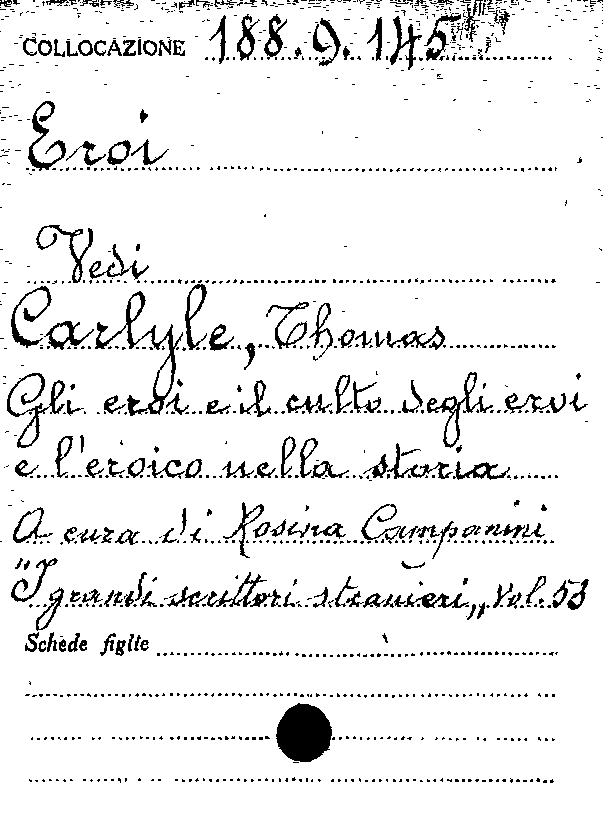 COLLOCAZIONE 188.9.145
Eroi
Vedi
Carlyle, Thomas
Gli eroi e il culto degli eroi
e l'eroico nella storia
A cura di Rosina Campanini
"I grandi scrittori stranieri„ Vol. 53
Schede figlie